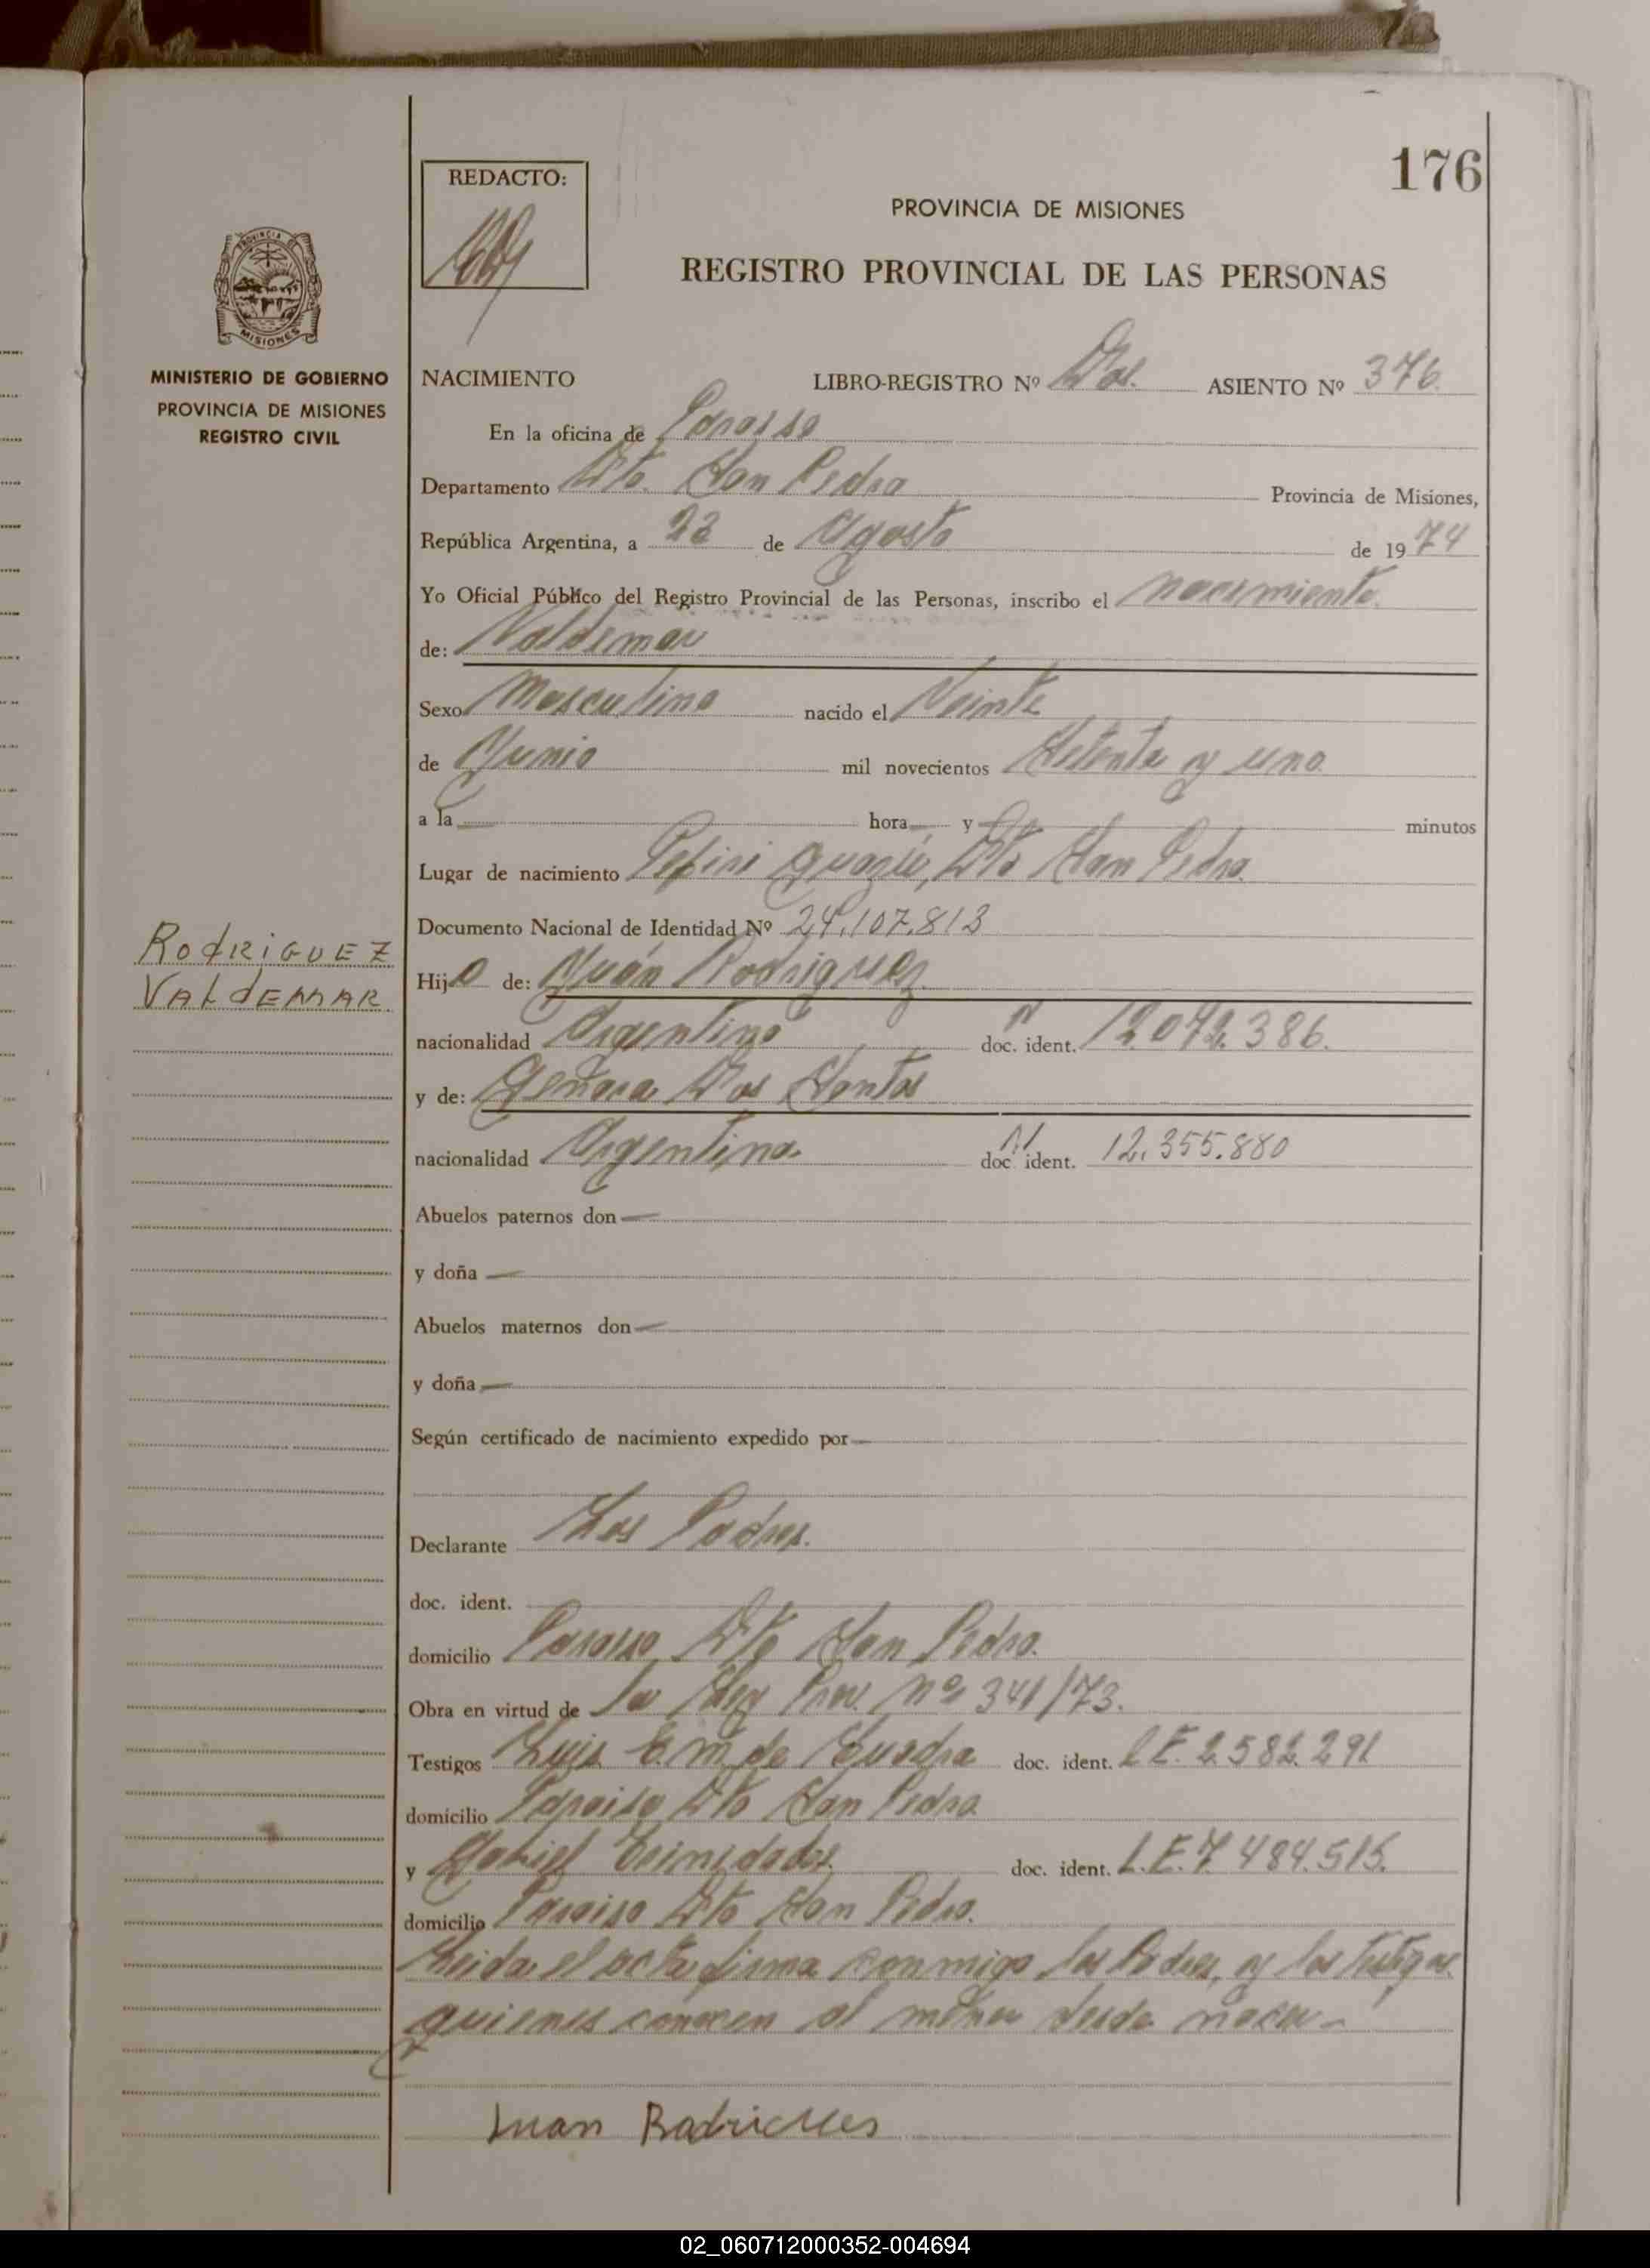 176
REDACTO:
PROVINCIA DE MISIONES
REGISTRO PROVINCIAL DE LAS PERSONAS
PROVINCIA DE
MISIONES
MINISTERIO DE GOBIERNO
PROVINCIA DE MISIONES
REGISTRO CIVIL
NACIMIENTO LIBRO-REGISTRO Nº Dos. ASIENTO Nº 376
En la oficina de Paraiso
Departamento Dto. San Pedro Provincia de Misiones,
República Argentina, a 22 de Agosto de 1974
Yo Oficial Público del Registro Provincial de las Personas, inscribo el nacimiento
de: Valdemar
Sexo Masculino nacido el Veinte
de Junio mil novecientos Setenta y uno
a la hora y minutos
Lugar de nacimiento Pepiri Guazú, Dto San Pedro
Documento Nacional de Identidad Nº 24.107.813
RODRIGUEZ
VALDEMAR
Hijo de: Juán Rodriguez
nacionalidad Argentino doc. ident. 12.072.386.
y de: Dos Santos
nacionalidad Argentina doc. ident. 12.355.880
Abuelos paternos don
y doña
Abuelos maternos don
y doña
Según certificado de nacimiento expedido por
Declarante Los Padres.
doc. ident.
domicilio Paraiso Dto San Pedro.
Obra en virtud de la Ley Prov. Nº 341/73.
Testigos Luis E. M. de doc. ident. L.E. 2.582.291
domicilio Paraiso Dto San Pedro
y Gabriel doc. ident. L.E. 7.484.515.
domicilio Paraiso Dto San Pedro.
Leida el acta firma conmigo los Padres, y los testigos
quienes conocen al menor desde nacer-
Juan
02_060712000352-004694